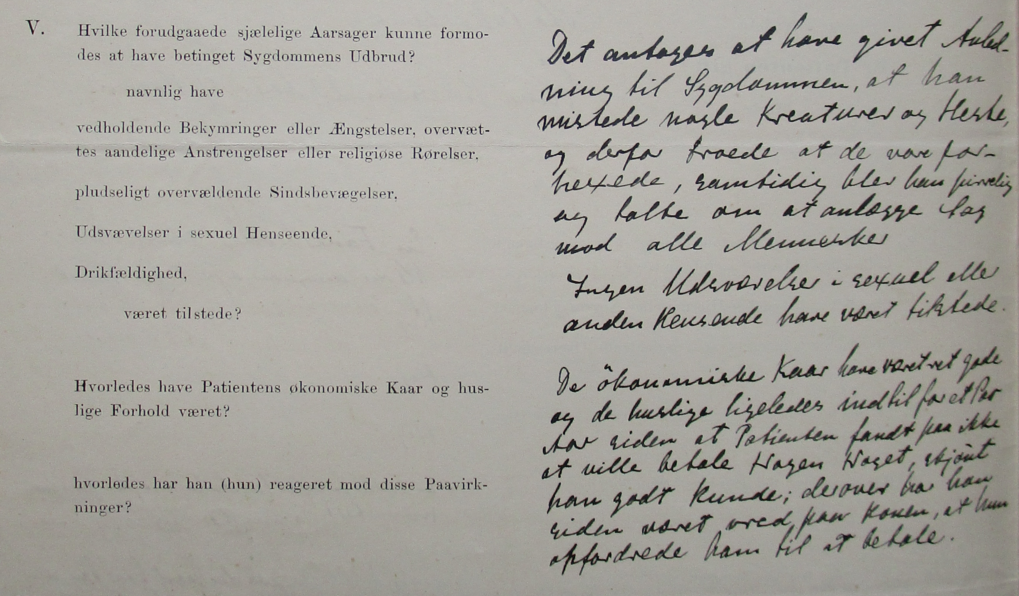 V.
Hvilke forudgaaede sjælelige Aarsager kunne formo-
des at have betinget Sygdommens Udbrud?
navnlig have
vedholdende Bekymringer eller Ængstelser, overvæt-
tes aandelige Anstrengelser eller religiøse Rørelser,
pludseligt overvældende Sindsbevægelser,
Udsvævelser i sexuel Henseende,
Drikfældighed,
været tilstede?
Hvorledes have Patientens økonomiske Kaar og hus-
lige Forhold været?
hvorledes har han (hun) reageret mod disse Paavirk-
ninger?
Det antages at have givet Anled-
ning til Sygdommen, at han
mistede nogle Kreaturer og Heste,
og derfor troede at de vare for-
hexede, samtidig blev han pirrelig
og talte om at anlægge Sag
mod alle Mennesker
Ingen Udsvævelser i sexuel eller
anden Henseende have været tilstede.
De økonomiske Kaar have været ret gode
og de huslige ligeledes indtil for et Par
Aar siden at Patienten fandt paa ikke
at ville betale Nogen Noget, skjønt
han godt kunde; derover har han
siden været vred paa Konen, at hun
opfordrede ham til at betale.